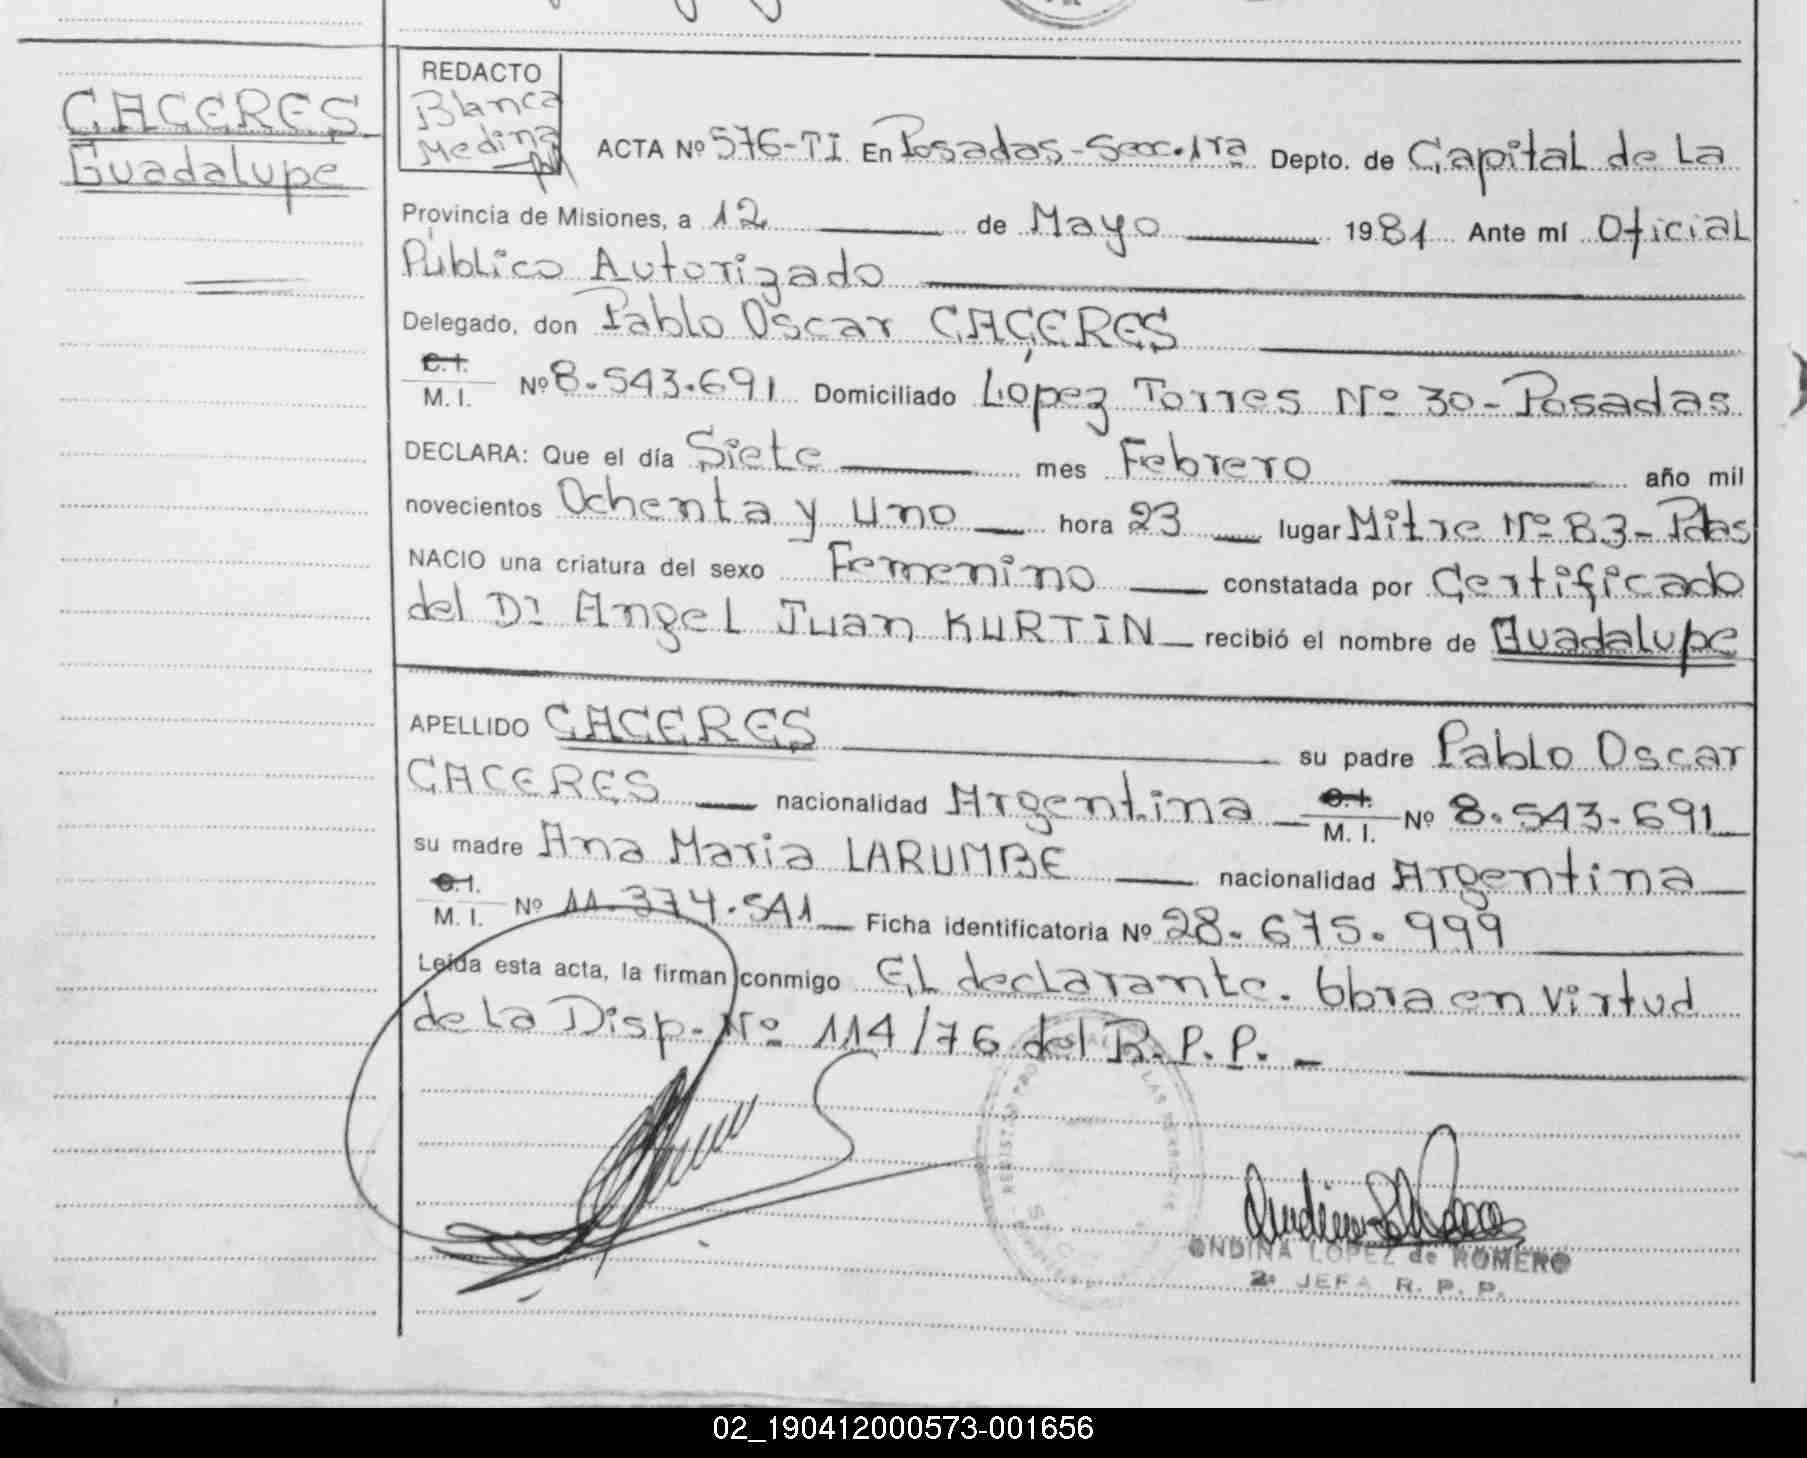 CACERES
Guadalupe
REDACTO
Blanca
Medina
ACTA Nº 576-TI En Posadas-Secc.1ra Depto. de Capital de La
Provincia de Misiones, a 12 de Mayo 1981 Ante mí Oficial
Público Autorizado
Delegado, don Pablo Oscar CACERES
C.I.
M. I. Nº 8.543.691 Domiciliado López Torres Nº 30-Posadas
DECLARA: Que el día Siete mes Febrero año mil
novecientos Ochenta y uno hora 23 lugar Mitre Nº 83-Pdas
NACIO una criatura del sexo Femenino constatada por Certificado
del Dr Angel Juan KURTIN recibió el nombre de Guadalupe
APELLIDO CACERES su padre Pablo Oscar
CACERES nacionalidad Argentina C.I. M. I. Nº 8.543.691
su madre Ana Maria LARUMBE nacionalidad Argentina
C.I.
M. I. Nº 11.374.541 Ficha identificatoria Nº 28.675.999
Leída esta acta, la firman conmigo El declarante. Obra en virtud
de la Disp. Nº 114/76 del R.P.P.-
ONDINA LOPEZ de ROMERO
2ª JEFA R. P. P.
02_190412000573-001656